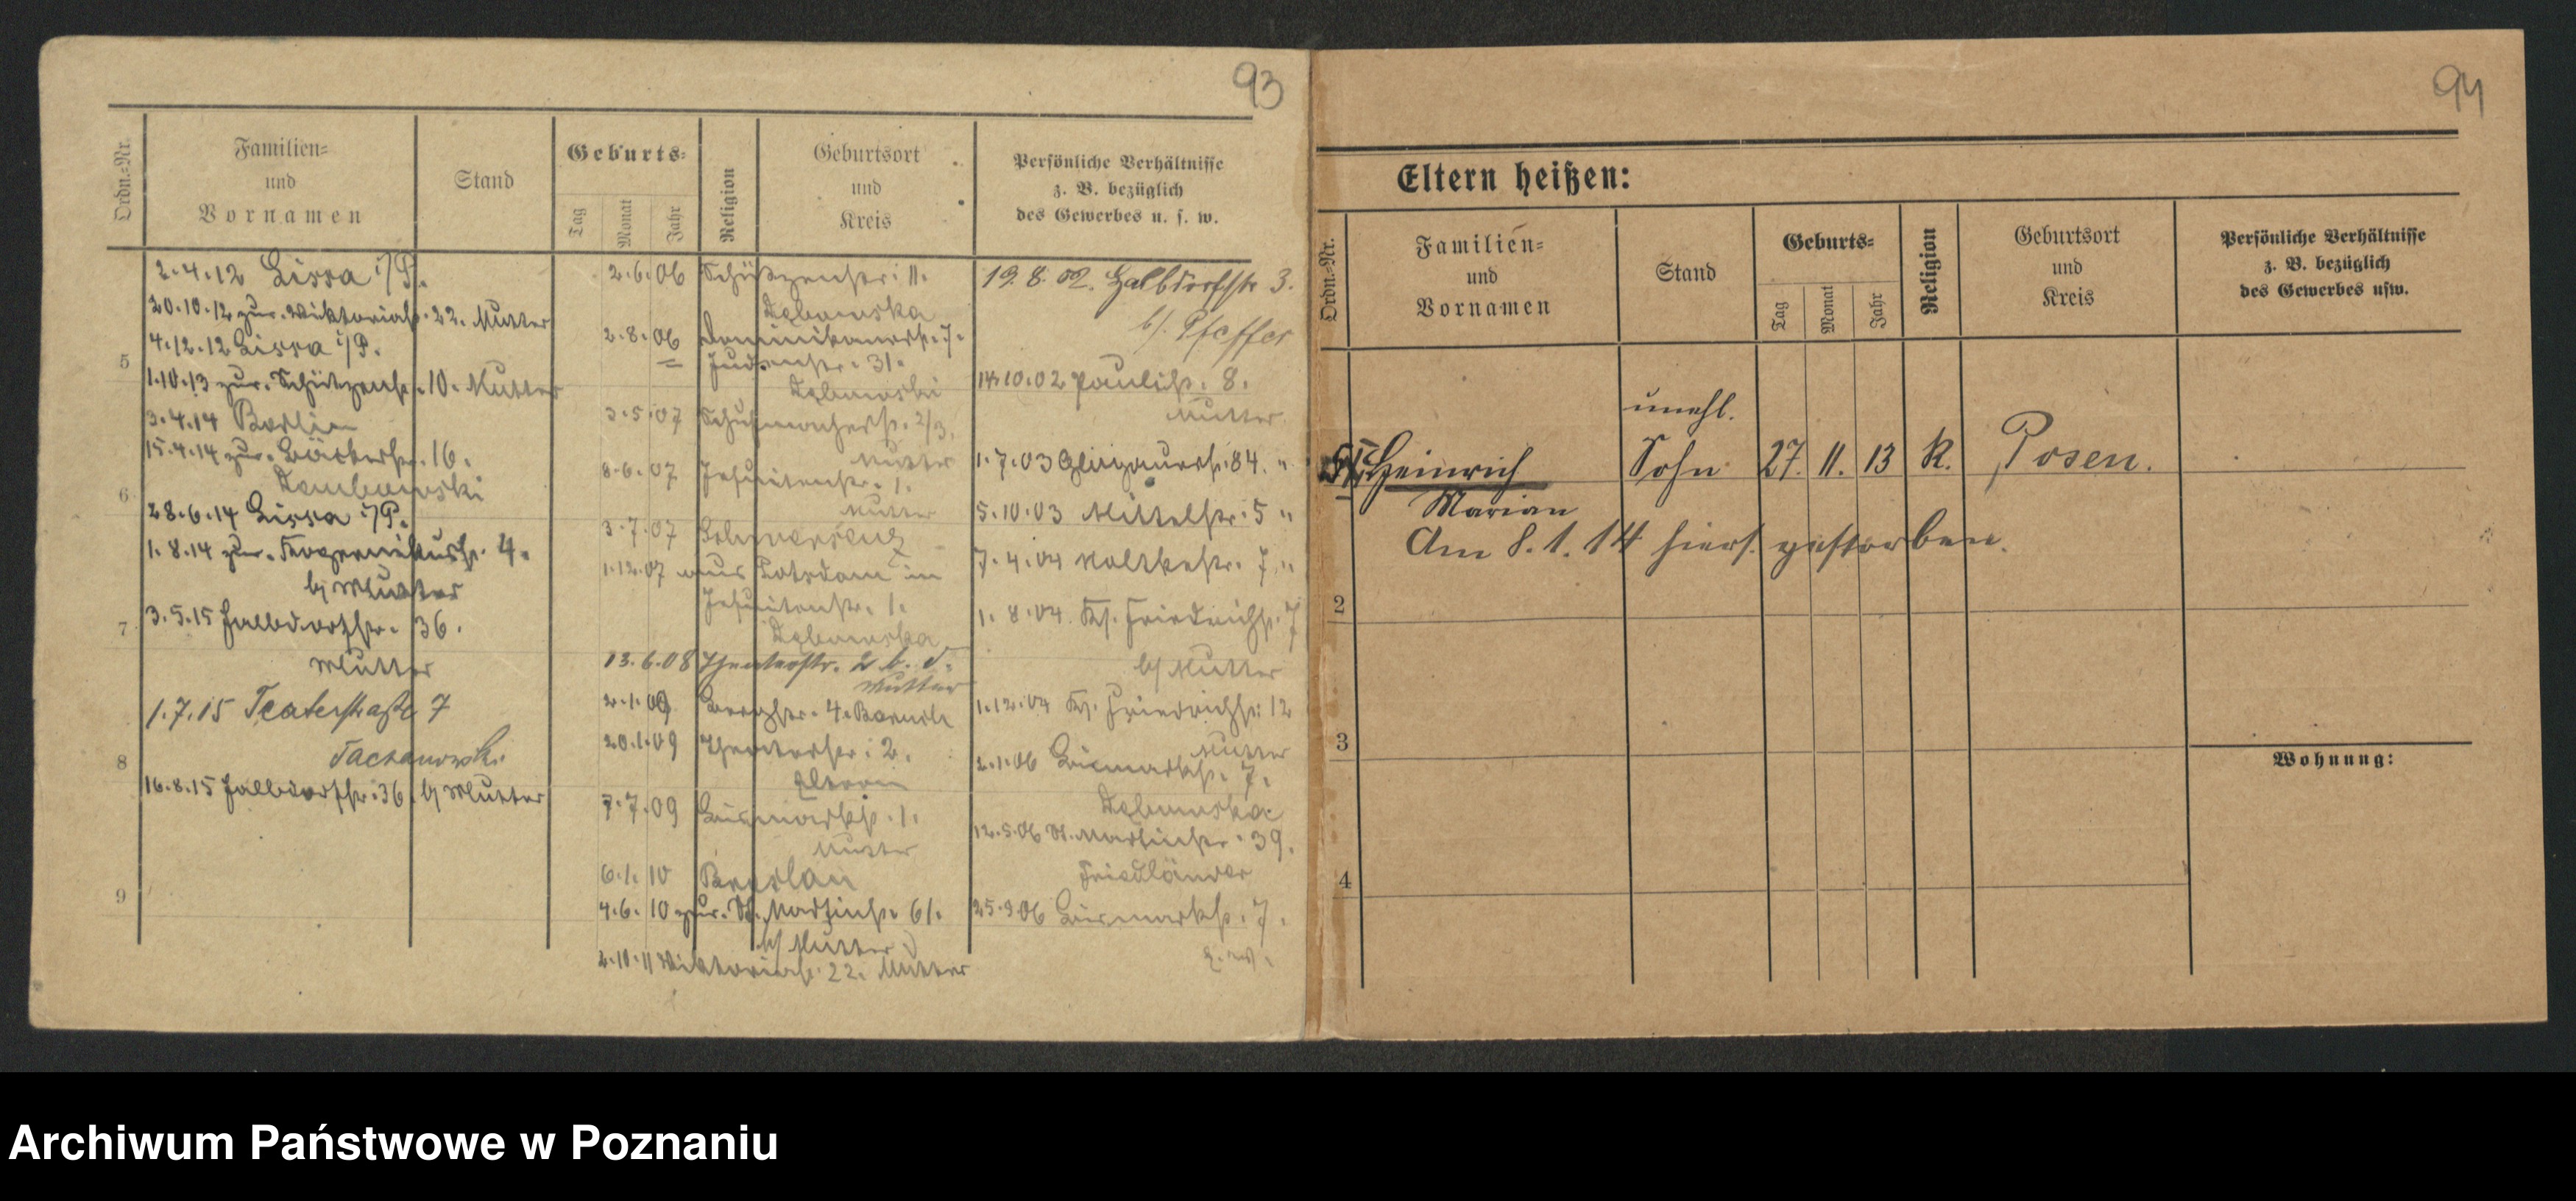 93
Ordn.-Nr.
Familien-
und
Vornamen
Stand
Geburts-
Tag
Monat
Jahr
Religion
Geburtsort
und
Kreis
Persönliche Verhältnisse
z. B. bezüglich
des Gewerbes u. s. w.
2.4.12 Lissa i/P.
20.10.12 zur. Viktoriastr. 22. Mutter
4.12.12 Lissa i/P.
5
1.10.13 zur. Schützenstr. 10. Mutter
3.4.14 Berlin
15.4.14 zur. Bäckerstr. 16.
Dembowski
6
28.6.14 Lissa i/P.
1.8.14 zur. 4.
b/ Mutter
7
3.5.15 Halbdorfstr. 36.
Mutter
1.7.15 Teaterstraße 7
8
16.8.15 Halbdorfstr. 36. b/ Mutter
9
2.6.06 Schützenstr. 11.
Dębowska
2.8.06 Dominikanerstr. 7.
Judenstr. 31.
Dębowski
3.5.07 Schuhmacherstr. 2/3.
Mutter
8.6.07 Jesuitenstr. 1.
Mutter
3.7.07 Schwersenz
1.12.07 aus Potsdam in
Jesuitenstr. 1.
Dębowska
13.6.08 Theaterstr. 2 b. d.
Mutter
2.1.09 4.
20.1.09 Theaterstr. 2.
Eltern
7.7.09 Bismarckstr. 1.
Mutter
6.1.10 Breslau
4.6.10 zur. St. Martinstr. 61.
b/ Mutter
2.10.11 Viktoriastr. 22. Mutter
19.8.02. Halbdorfstr 3.
b/. Pfeffer
14.10.02 Paulistr. 8.
Mutter
1.7.03 Glogauerstr. 84. "
5.10.03 Mittelstr. 5 "
7.4.04 Moltkestr. 7. "
1.8.04. Kl. Friedrichstr. 7
b/ Mutter
1.12.04 Friedrichstr. 12
Mutter
2.1.06 Bismarckstr. 7.
Dębowska
12.5.06 St. Martinstr. 39.
Friedländer
25.9.06 Bismarckstr. 7.
94
Eltern heißen:
Ordn.-Nr.
Familien-
und
Vornamen
Stand
Geburts-
Tag
Monat
Jahr
Religion
Geburtsort
und
Kreis
Persönliche Verhältnisse
z. B. bezüglich
des Gewerbes usw.
unehl.
Heinrich Sohn 27. 11. 13 K. Posen.
Marian
Am 8.1.14 hiers. gestorben.
2
3
Wohnung:
4
Archiwum Państwowe w Poznaniu